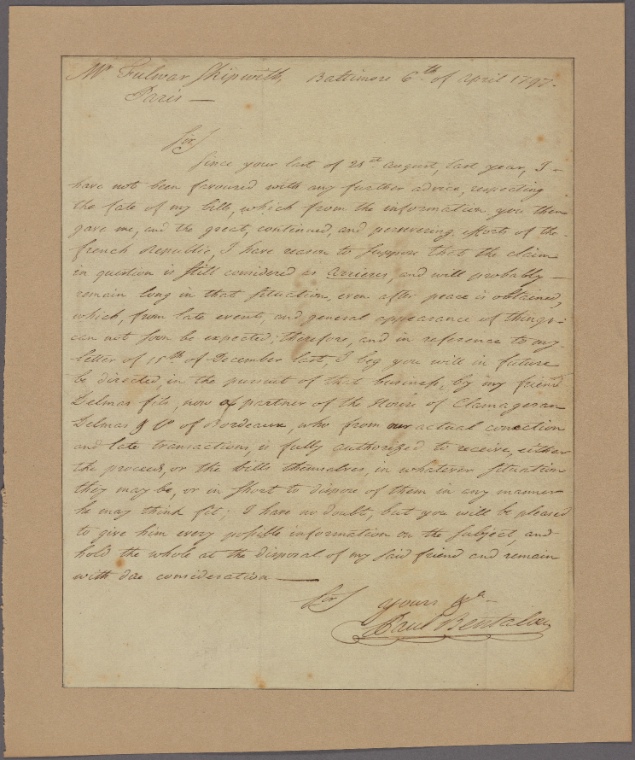 Mr Fulwar Skipwith, Baltimore 6th of April 1797.
Paris —
Sir/
Since your last of 21st August, last year, I
have not been favoured with any further advice, respecting
the fate of my bills, which from the information you then
gave me, and the great, continued, and persevering efforts of the
french Republic, I have reason to suppose that the claim
in question is still considered as Arrieres, and will probably
remain long in that situation, even after peace is obtained,
which, from late events, and general appearance of things
can not soon be expected; therefore, and in reference to my
letter of 15th of December last, I beg you will in future
be directed, in the pursuit of that business, by my friend
Delmas fils, now a partner of the House of Clamageran
Delmas & Co of Bordeaux, who from our actual conection
and late transactions, is fully authorised to receive, either
the proceed, or the bills themselves, in whatever situation
they may be, or in short to dispose of them in any manner
he may think fit; I have no doubt, but you will be pleased
to give him every possible information on the subject, and
hold the whole at the disposal of my said friend and remain
with due consideration —
Sir/ yours &a
Paul Bentalou